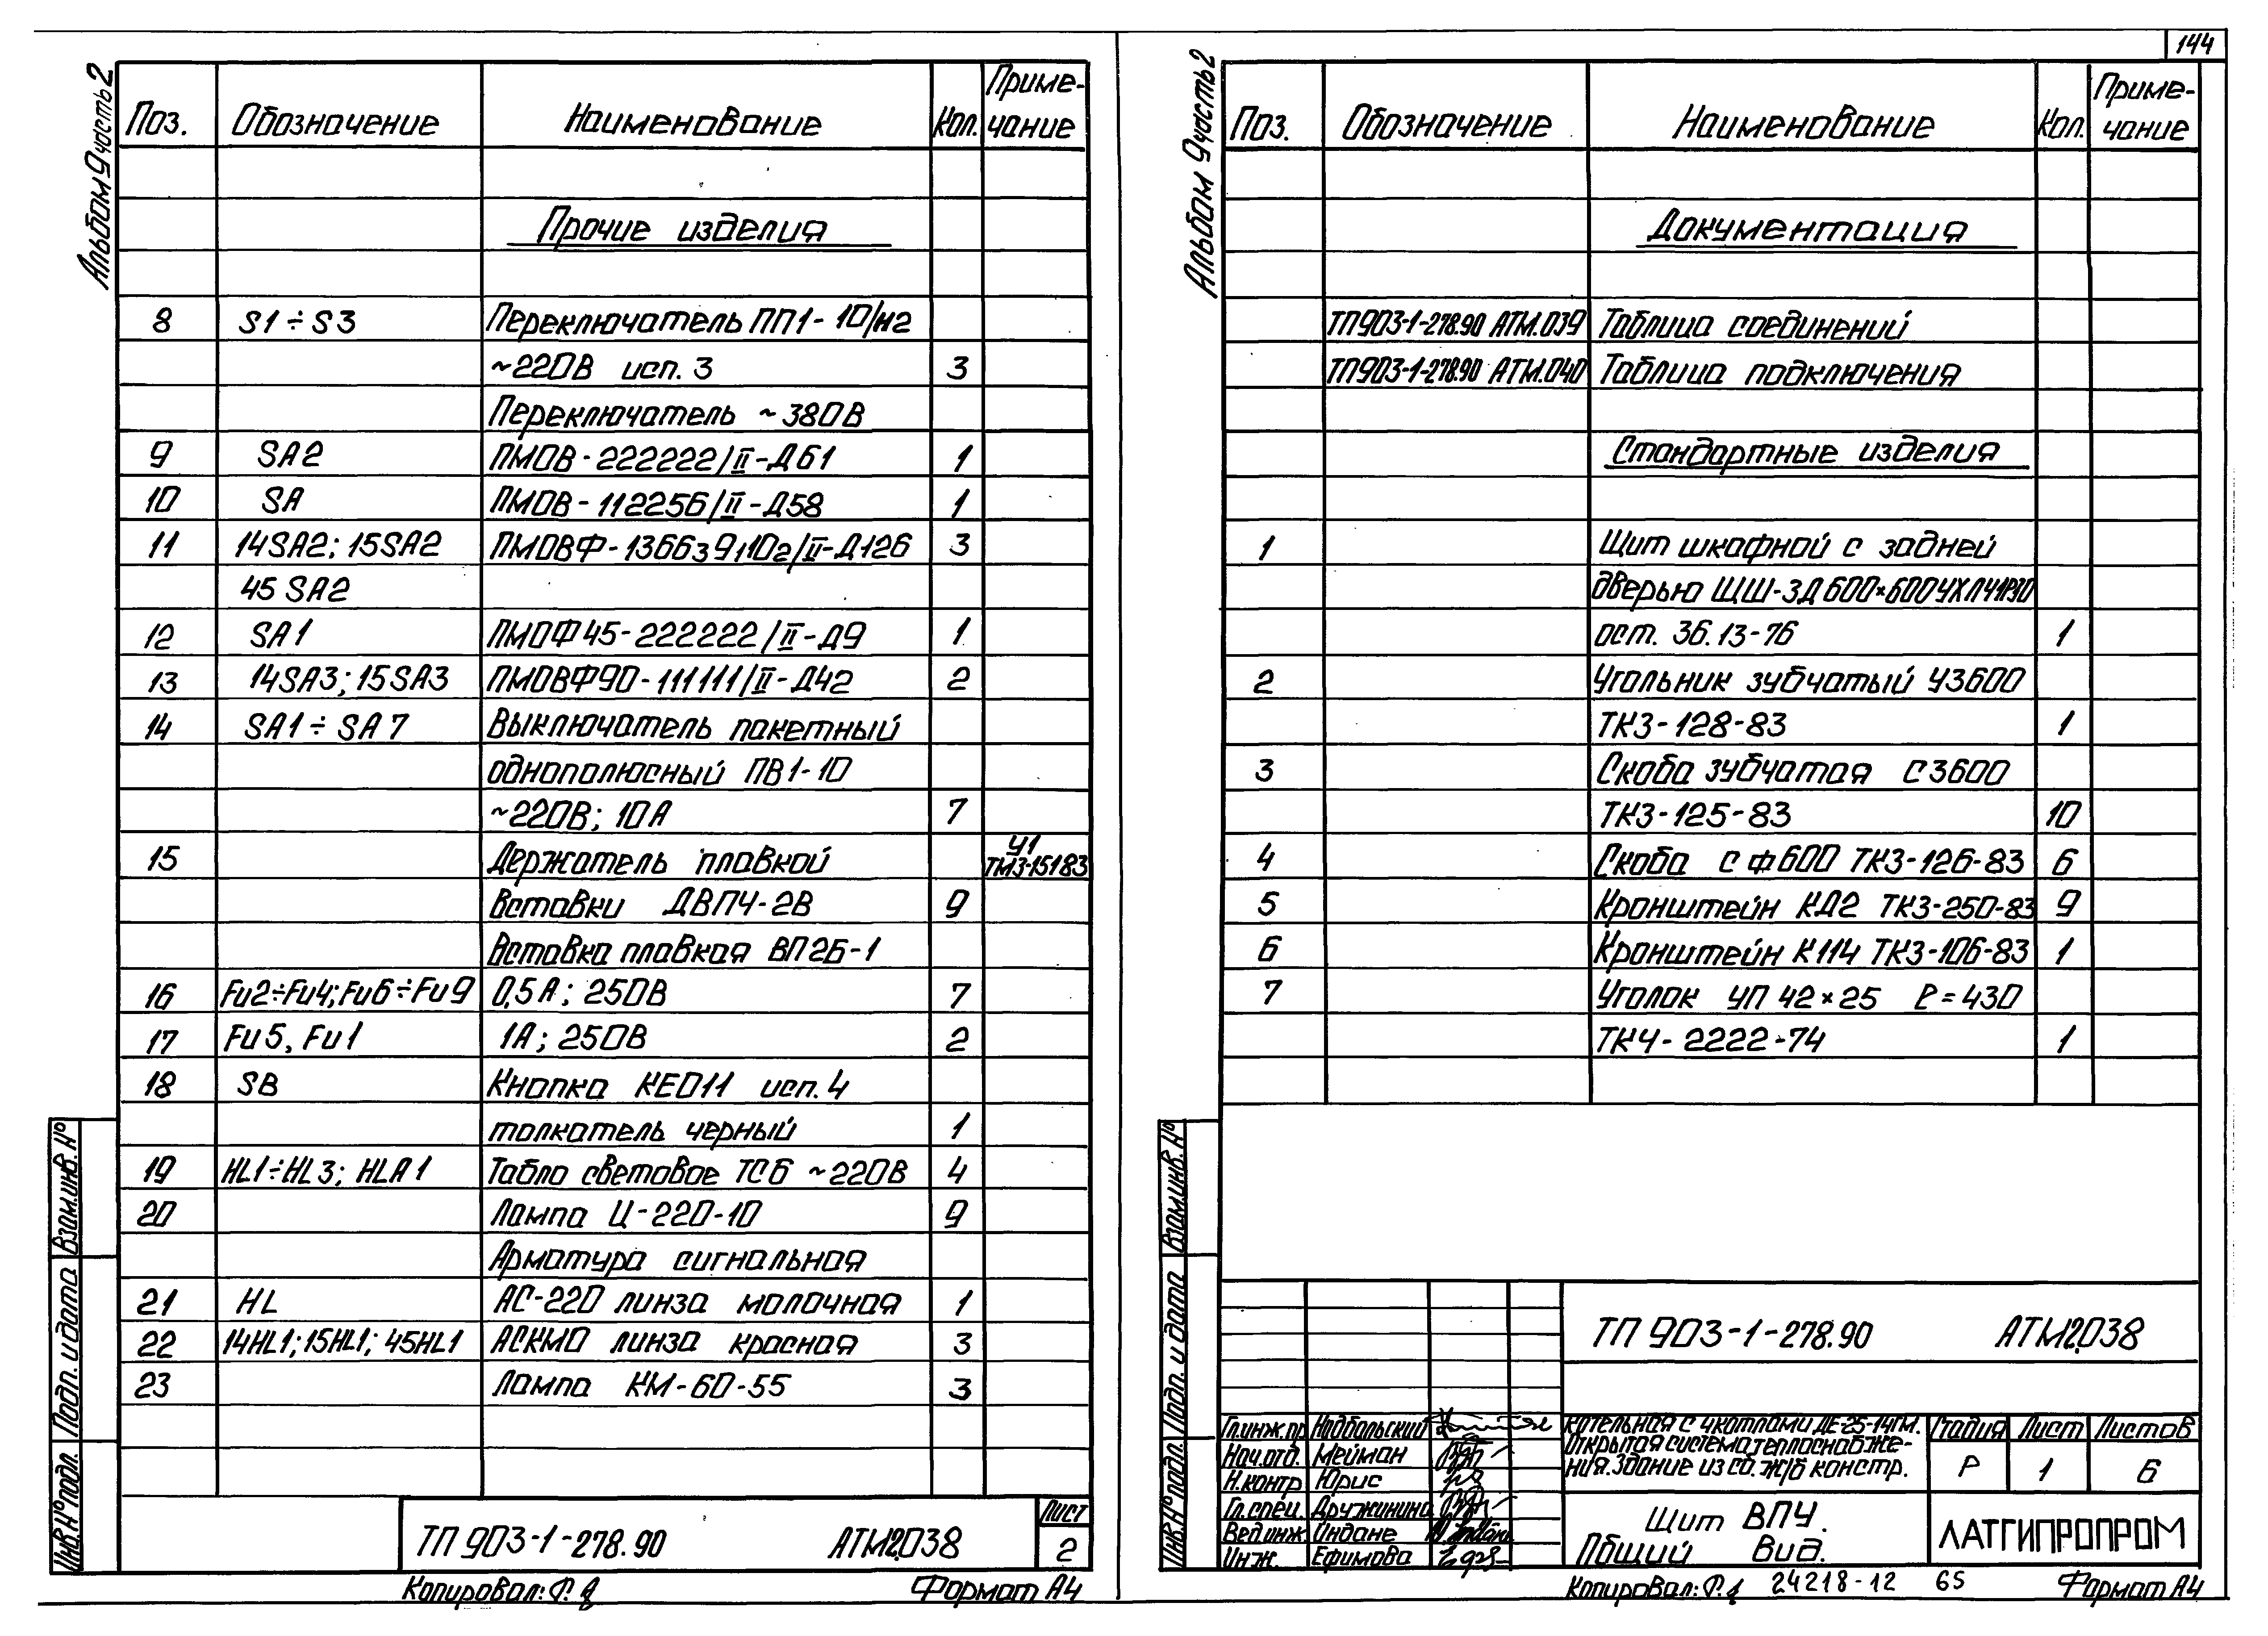 144
Альбом 9 часть 2
Поз. Обозначение Наименование Кол. Приме-
чание
Прочие изделия
8 S1÷S3 Переключатель ПП1-10/н2
~220В исп. 3 3
Переключатель ~380В
9 SA2 ПМОВ-222222/II-Д61 1
10 SA ПМОВ-112256/II-Д58 1
11 14SA2; 15SA2 ПМОВФ-1366391102/II-Д126 3
45SA2
12 SA1 ПМОФ45-222222/II-Д9 1
13 14SA3; 15SA3 ПМОВФ90-111111/II-Д42 2
14 SA1÷SA7 Выключатель пакетный
однополюсный ПВ1-10
~220В; 10А 7
15 Держатель плавкой У1
ТМ3-15183
вставки ДВП4-2В 9
Вставка плавкая ВП2Б-1
16 Fu2÷Fu4; Fu6÷Fu9 0,5А; 250В 7
17 Fu5, Fu1 1А; 250В 2
18 SB Кнопка КЕ011 исп. 4
толкатель черный 1
19 HL1÷HL3; HLA1 Табло световое ТСБ ~220В 4
20 Лампа Ц-220-10 9
Арматура сигнальная
21 HL АС-220 линза молочная 1
22 14HL1; 15HL1; 45HL1 АСКМО линза красная 3
23 Лампа КМ-60-55 3
Взам.инв.№
Подп. и дата
Инв.№ подл.
ТП 903-1-278.90 АТМ2.038
Лист
2
Копировал: Ф.
Формат А4
Альбом 9 часть 2
Поз. Обозначение Наименование Кол. Приме-
чание
Документация
ТП903-1-278.90 АТМ.039 Таблица соединений
ТП903-1-278.90 АТМ.040 Таблица подключения
Стандартные изделия
1 Щит шкафной с задней
дверью ЩШ-ЗД 600×600УХЛ41Р30
ост. 36.13-76 1
2 Угольник зубчатый УЗ600
ТК3-128-83 1
3 Скоба зубчатая СЗ600
ТК3-125-83 10
4 Скоба СФ600 ТК3-126-83 6
5 Кронштейн КД2 ТК3-250-83 9
6 Кронштейн К114 ТК3-106-83 1
7 Уголок УП 42×25 ℓ=430
ТК4-2222-74 1
Взам.инв.№
Подп. и дата
Инв.№ подл.
ТП 903-1-278.90 АТМ2.038
Гл.инж.пр Надбольский
Нач.отд. Мейман
Н.контр Юрис
Гл.спец. Дружинина
Вед.инж. Индане
Инж. Ефимова
Котельная с 4 котлами ДЕ-25-14ГМ.
Открытая система теплоснабже-
ния. Здание из сб. ж/б констр.
Стадия Лист Листов
Р 1 6
Щит ВПУ.
Общий вид.
ЛАТГИПРОПРОМ
Копировал: Ф.
24218-12 65
Формат А4